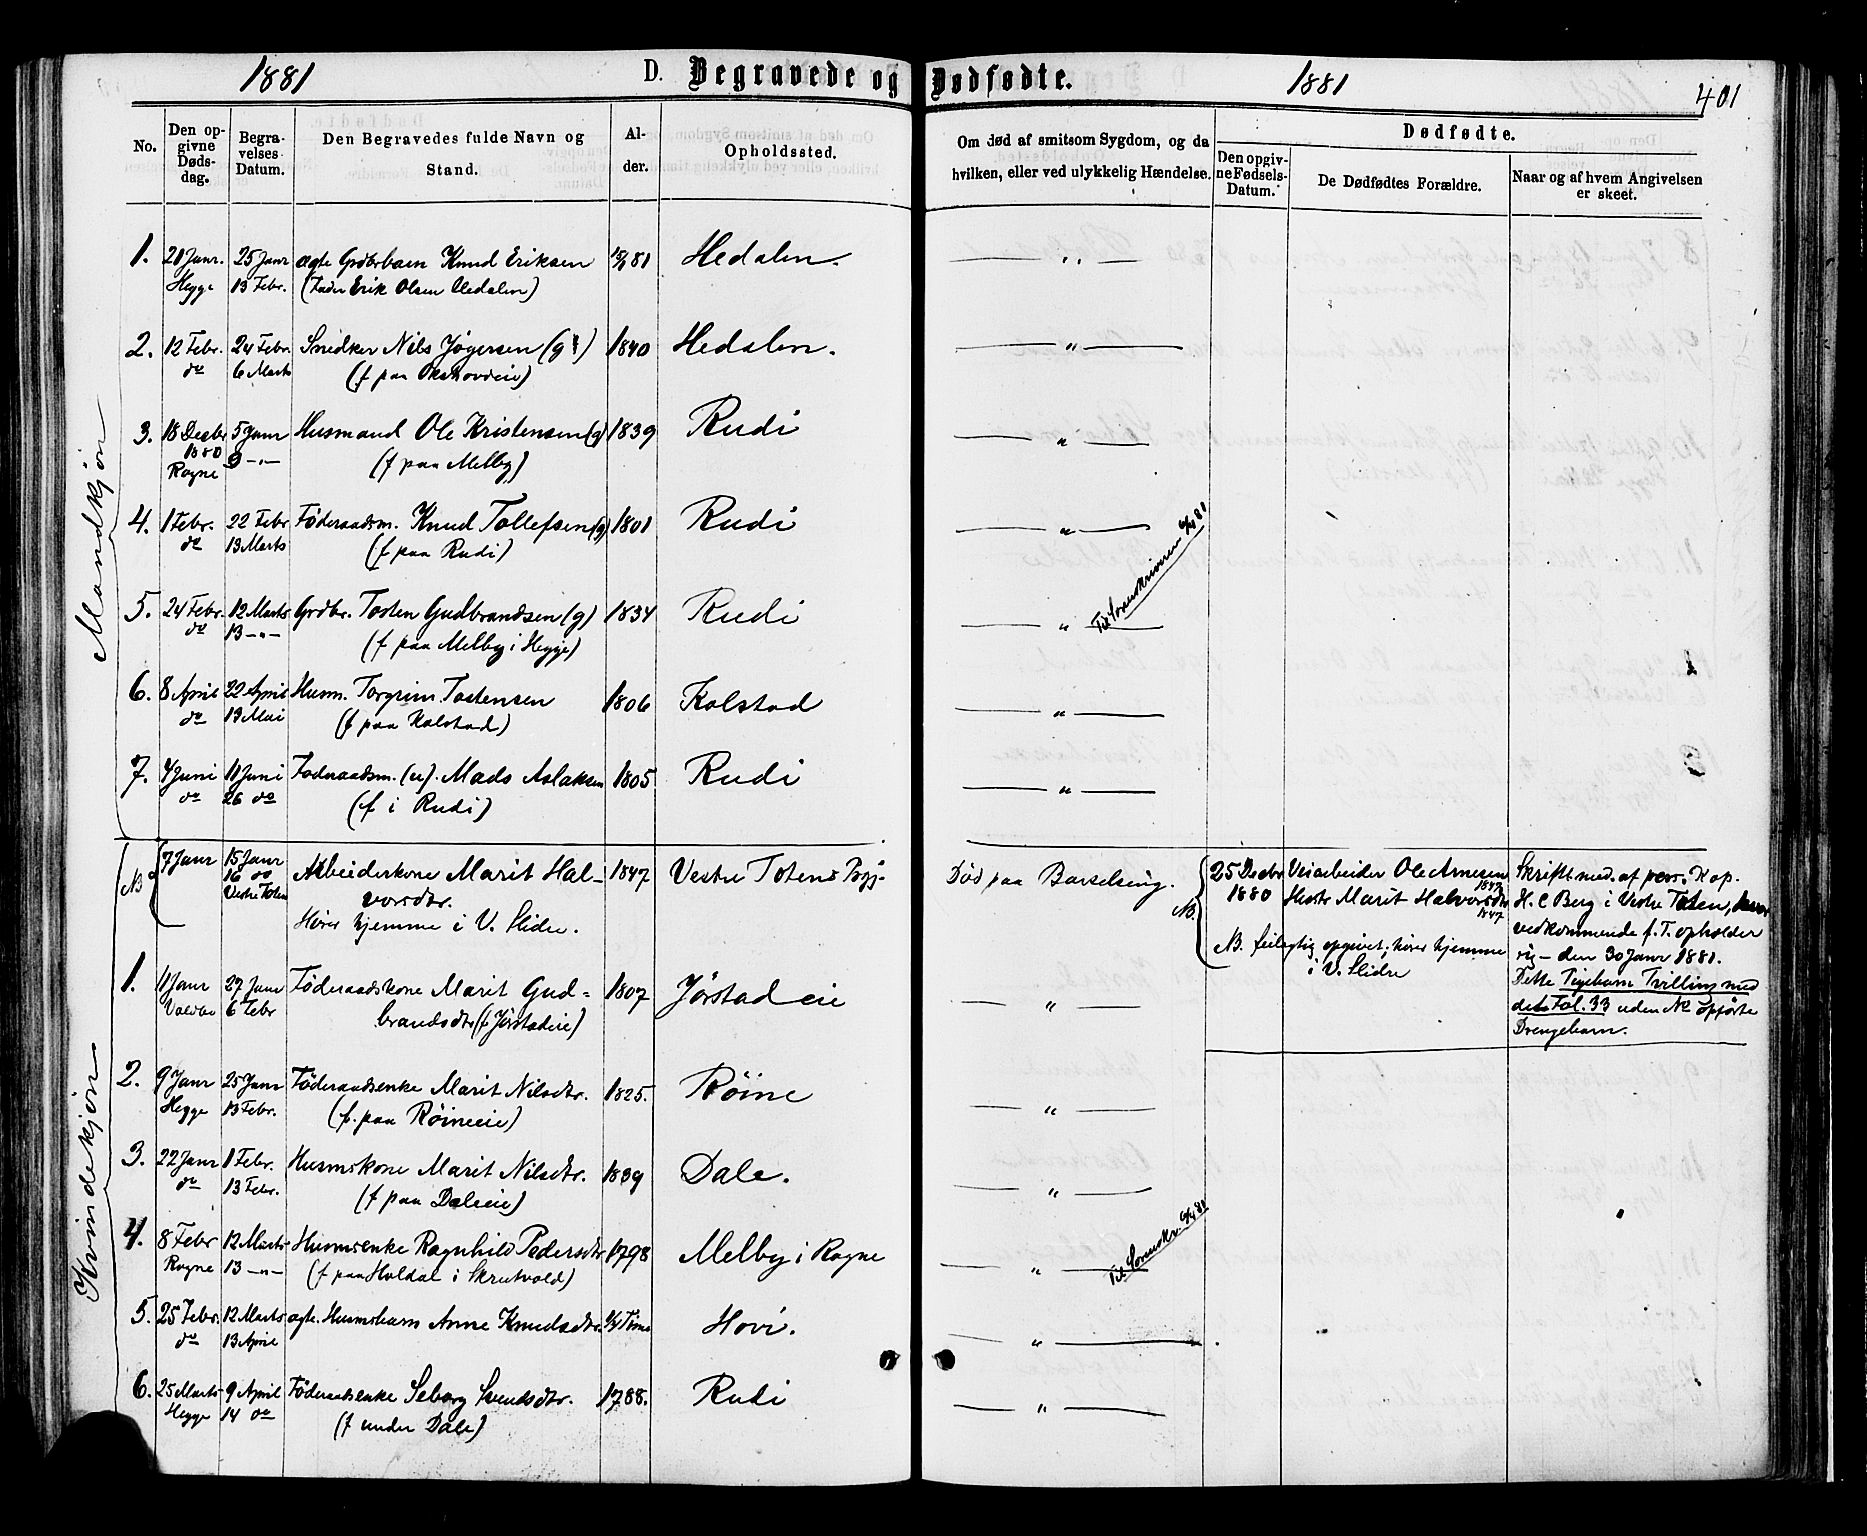 1881 D. Begravede og Dødfødte. 1881 401
No.
Den op-
givne
Døds-
dag.
Begra-
velses
Datum.
Den Begravedes fulde Navn og
Stand.
Al-
der.
Opholdssted.
Om død af smitsom Sygdom, og da
hvilken, eller ved ulykkelig Hændelse.
Dødfødte.
Den opgiv-
ne Fødsels-
Datum.
De Dødfødtes Forældre.
Naar og af hvem Angivelsen
er skeet.
Mandkjøn
1. 21 Janr. 25 Janr ægte Grdbrbarn Knud Eriksen 81 Hedalen. — " —
Hegge 13 Febr. (Fader Erik Olsen Hedalen)
2. 12 Febr. 24 Febr. Snedker Nils Jøgersen (g) 1840 Hedalen. — " —
do 6 Marts (f paa Okshovdeie)
3. 18 Decbr 5 Janr Husmand Ole Kristensen (g) 1839 Rudi — " —
1880 9 — " — (f paa Melby)
Rogne
4. 1 Febr. 22 Febr Föderaadsm. Knud Tollefsen (g) 1801 Rudi — " —
do 13 Marts (f paa Rudi)
Til Sorenskriveren 6/4 81
5. 24 Febr. 12 Marts Grdbr. Tosten Gudbrandsen (g) 1834 Rudi — " —
do 13 — " — (f paa Melby i Hegge)
6. 8 April 22 April Husm. Torgrim Tostensen 1806 Kolstad — " —
do 19 Mai (f paa Kolstad)
7. 4 Juni 11 Juni Föderaadsm. (u). Mads Aslaksen 1805 Rudi — " —
do 26 do (f i Rudi)
NB 7 Janr 15 Janr Arbeiderkone Marit Hal- 1847 Vestre Totens Pgj. Död paa Barselseng.
16 do vorsdtr.
Vestre Toten Hører hjemme i V. Slidre.
NB. 25 Decbr 1880 Veiarbeider Ole Arnesen 1847
Hustr Marit Halvorsdtr 1847
NB. feilagtig opgivet; hører hjemme
i V. Slidre
Skriftl. med. af pers. Kap.
H. C Berg i Vestre Toten, hvor
vedkommende f. T. opholder
sig — den 30 Janr 1881.
Dette Pigebarn Tvilling med
det Fol. 33 uden No opførte
Drengebarn.
Kvindekjøn
1. 11 Janr 27 Janr Föderaadskone Marit Gud- 1807 Jørstad eie — " —
Voldbo 6 Febr brandsdtr (f Jørstadeie)
2. 9 Janr 25 Janr Föderaadsenke Marit Nilsdtr. 1825. Røine — " —
Hegge 13 Febr. (f. paa Røineeie)
3. 22 Janr 1 Febr. Husmskone Marit Nilsdtr. 1839 Dale. — " —
do 13 Febr. (f paa Daleeie)
4. 8 Febr 12 Marts Husmsenke Ragnhild Pedersdtr 1798 Melby i Rogne — " —
Rogne 13 — " — (f paa Haldal i Skrutvold)
Til Sorenskr. 6/4 81
5. 25 Febr. 12 Marts ægte. Husmsbarn Anne Knudsdtr. 1/4 Time Hovi. — " —
do 13 April
6. 25 Marts 9 April Föderaadsenke Seborg Svendsdtr. 1788. Rudi — " —
Hegge 14 do (f under Dale)